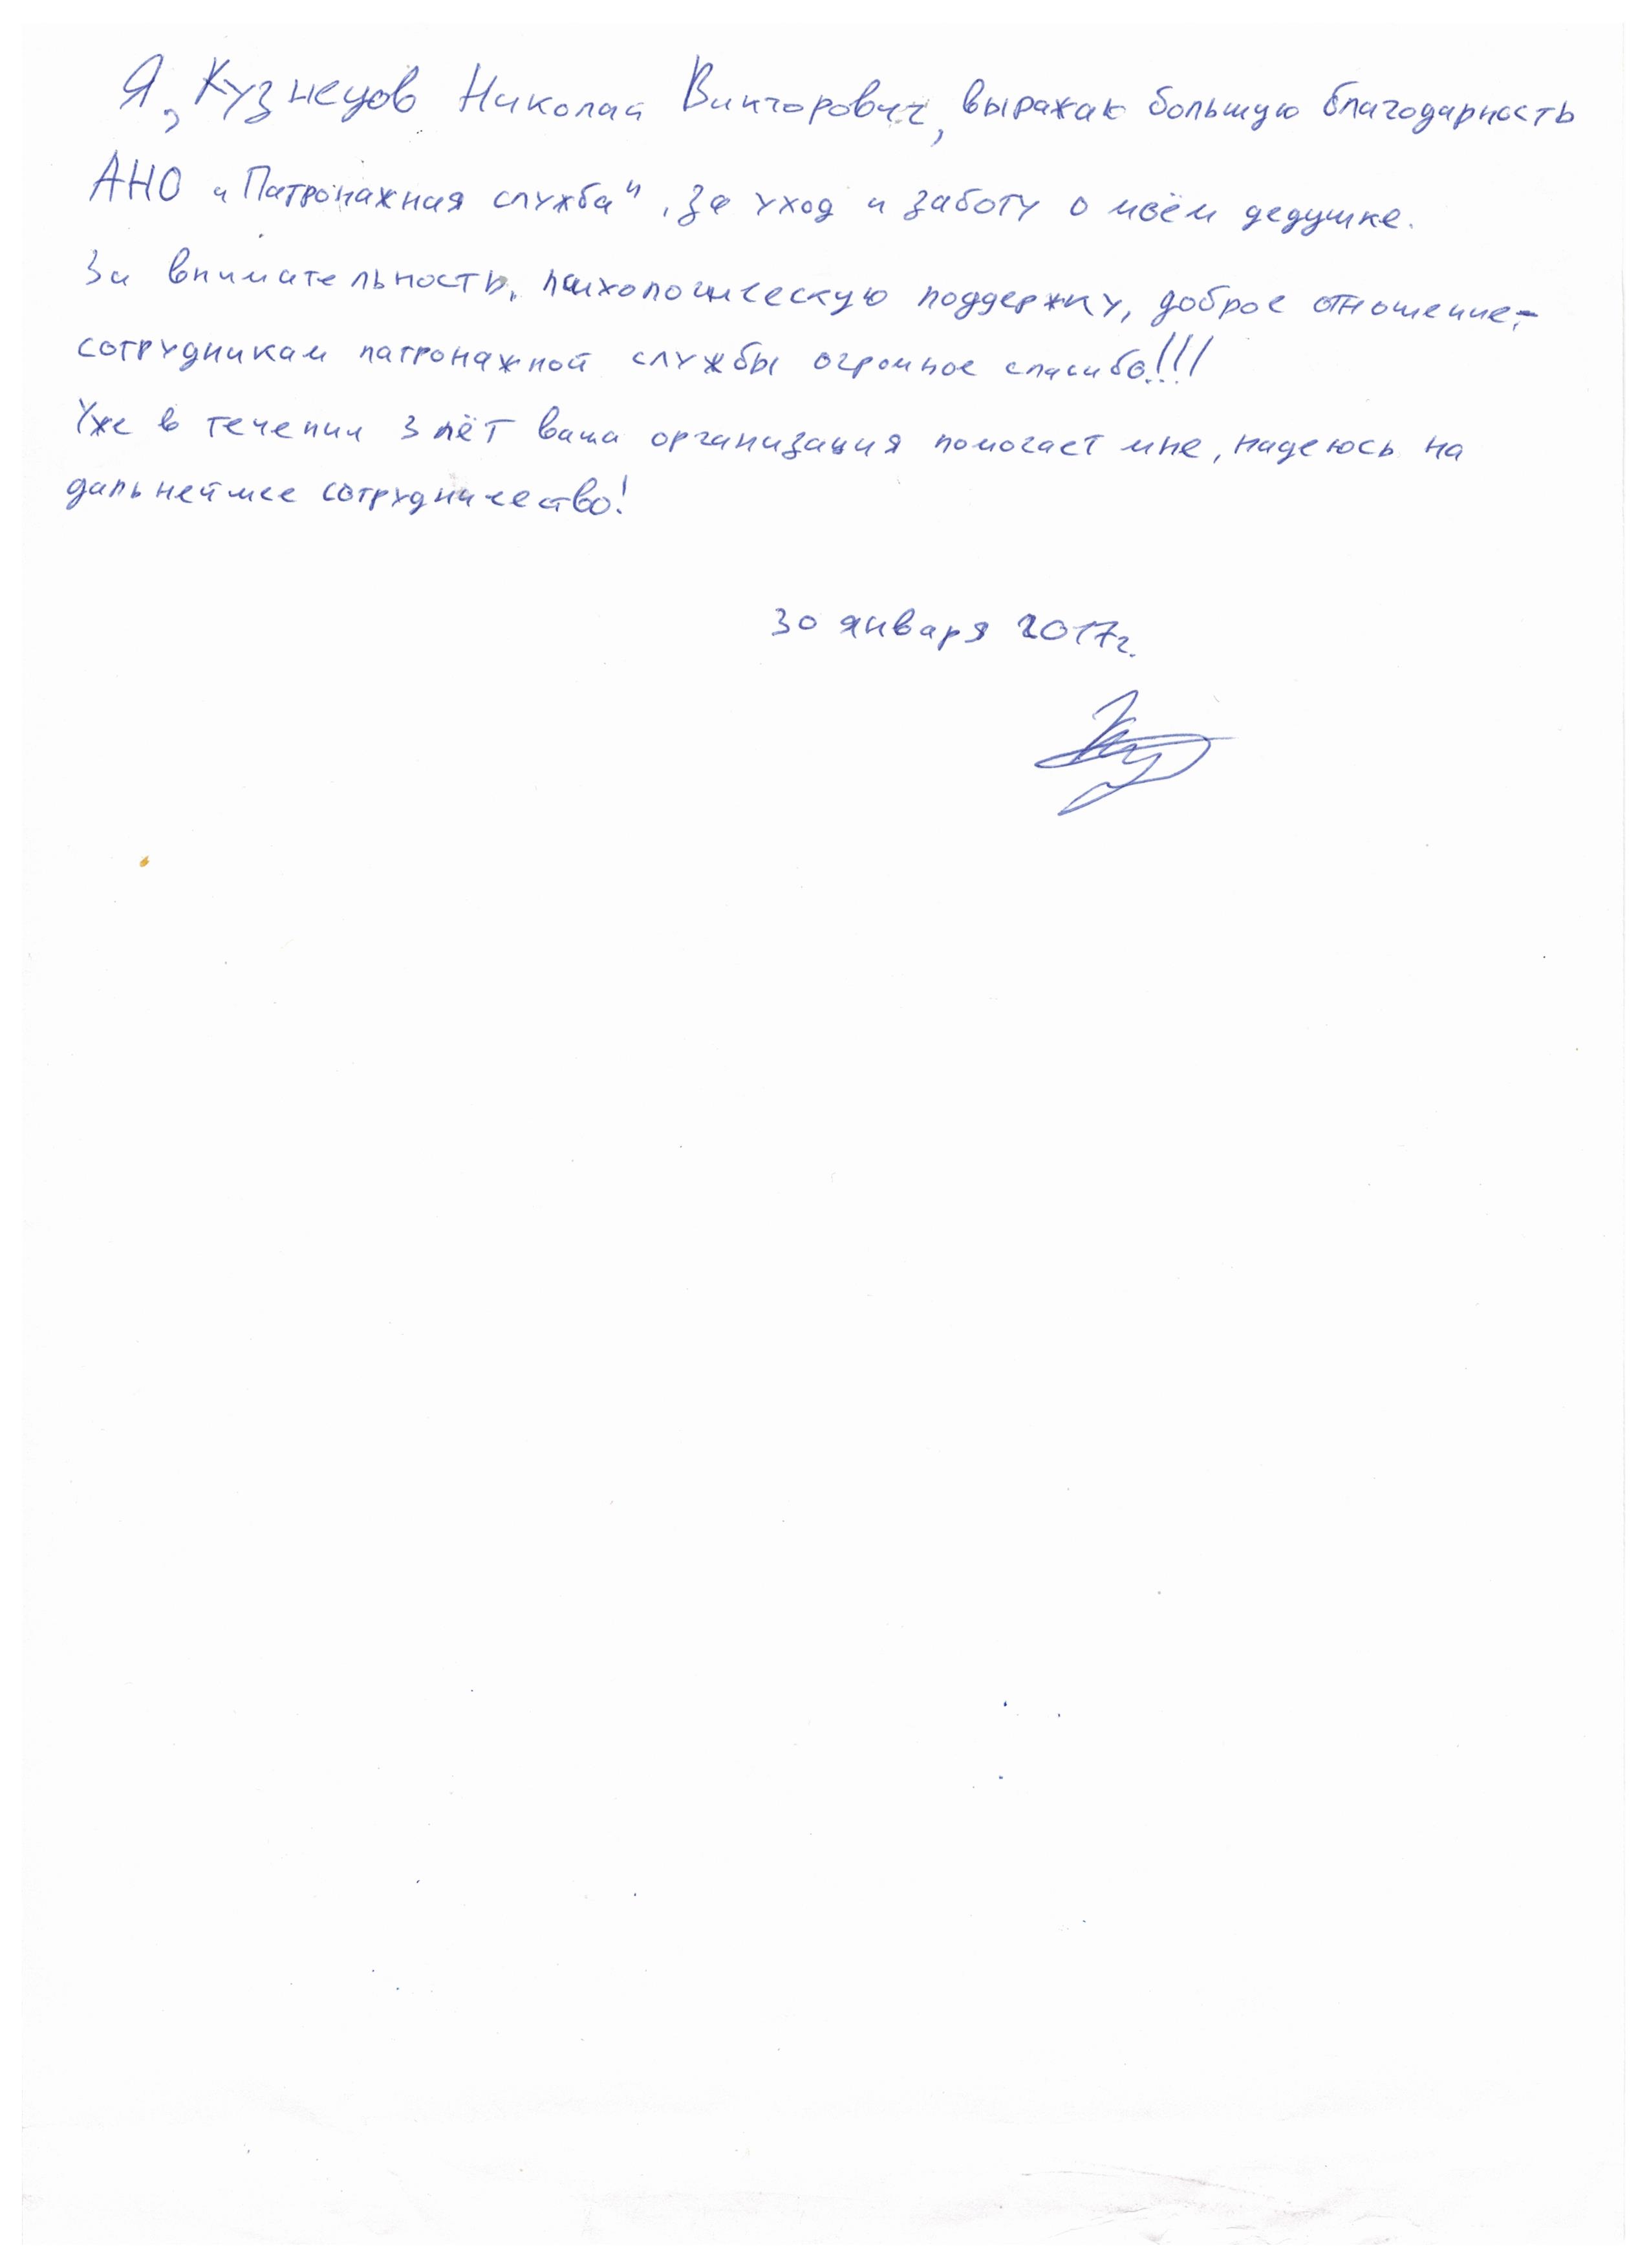 Я, Кузнецов Николай Викторович, выражаю большую благодарность
АНО "Патронажная служба", за уход и заботу о моём дедушке.
За внимательность, психологическую поддержку, доброе отношение -
сотрудникам патронажной службы огромное спасибо!!!
Уже в течении 3 лёт ваша организация помогает мне, надеюсь на
дальнейшее сотрудничество!
30 января 2017г.